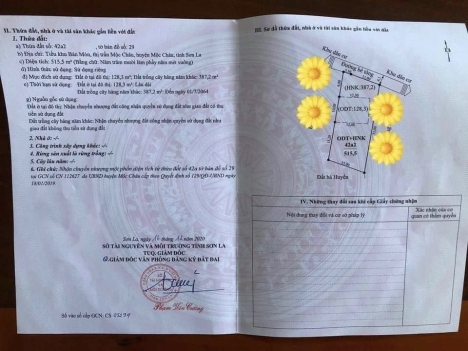 II. Thửa đất, nhà ở và tài sản khác gắn liền với đất
1. Thửa đất:
a) Thửa đất số: 42a2 , tờ bản đồ số: 29
b) Địa chỉ: Tiểu khu Bản Môn, thị trấn Mộc Châu, huyện Mộc Châu, tỉnh Sơn La
c) Diện tích: 515,5 m² (Bằng chữ: Năm trăm mười lăm phẩy năm mét vuông)
d) Hình thức sử dụng: Sử dụng riêng
đ) Mục đích sử dụng: Đất ở tại đô thị: 128,3 m²; Đất trồng cây hàng năm khác: 387,2 m²
e) Thời hạn sử dụng: Đất ở tại đô thị: 128,3 m²: Lâu dài
Đất trồng cây hàng năm khác: 387,2 m²: Đến ngày 01/7/2064
g) Nguồn gốc sử dụng:
Đất ở tại đô thị: Nhận chuyển nhượng đất công nhận quyền sử dụng đất như giao đất có thu
tiền sử dụng đất
Đất trồng cây hàng năm khác: Nhận chuyển nhượng đất công nhận quyền sử dụng đất như
giao đất không thu tiền sử dụng đất
2. Nhà ở: -/-
3. Công trình xây dựng khác: -/-
4. Rừng sản xuất là rừng trồng: -/-
5. Cây lâu năm: -/-
6. Ghi chú: Nhận chuyển nhượng một phần diện tích từ thửa đất số 42a tờ bản đồ số 29
tại GCN số CN 112427 do UBND huyện Mộc Châu cấp theo Quyết định số 129/QĐ-UBND ngày
18/01/2019.
Sơn La, ngày tháng năm 2020
SỞ TÀI NGUYÊN VÀ MÔI TRƯỜNG TỈNH SƠN LA
TUQ. GIÁM ĐỐC
GIÁM ĐỐC VĂN PHÒNG ĐĂNG KÝ ĐẤT ĐAI
Phạm Tiến Cường
Số vào sổ cấp GCN: CS
III. Sơ đồ thửa đất, nhà ở và tài sản khác gắn liền với đất
Khu dân cư
Khu dân cư
Đường bê tông
(HNK:387,2)
(ODT:128,3)
ODT+HNK
42a2
515,5
Đất bà Huyền
IV. Những thay đổi sau khi cấp Giấy chứng nhận
Nội dung thay đổi và cơ sở pháp lý
Xác nhận của cơ
quan có thẩm quyền